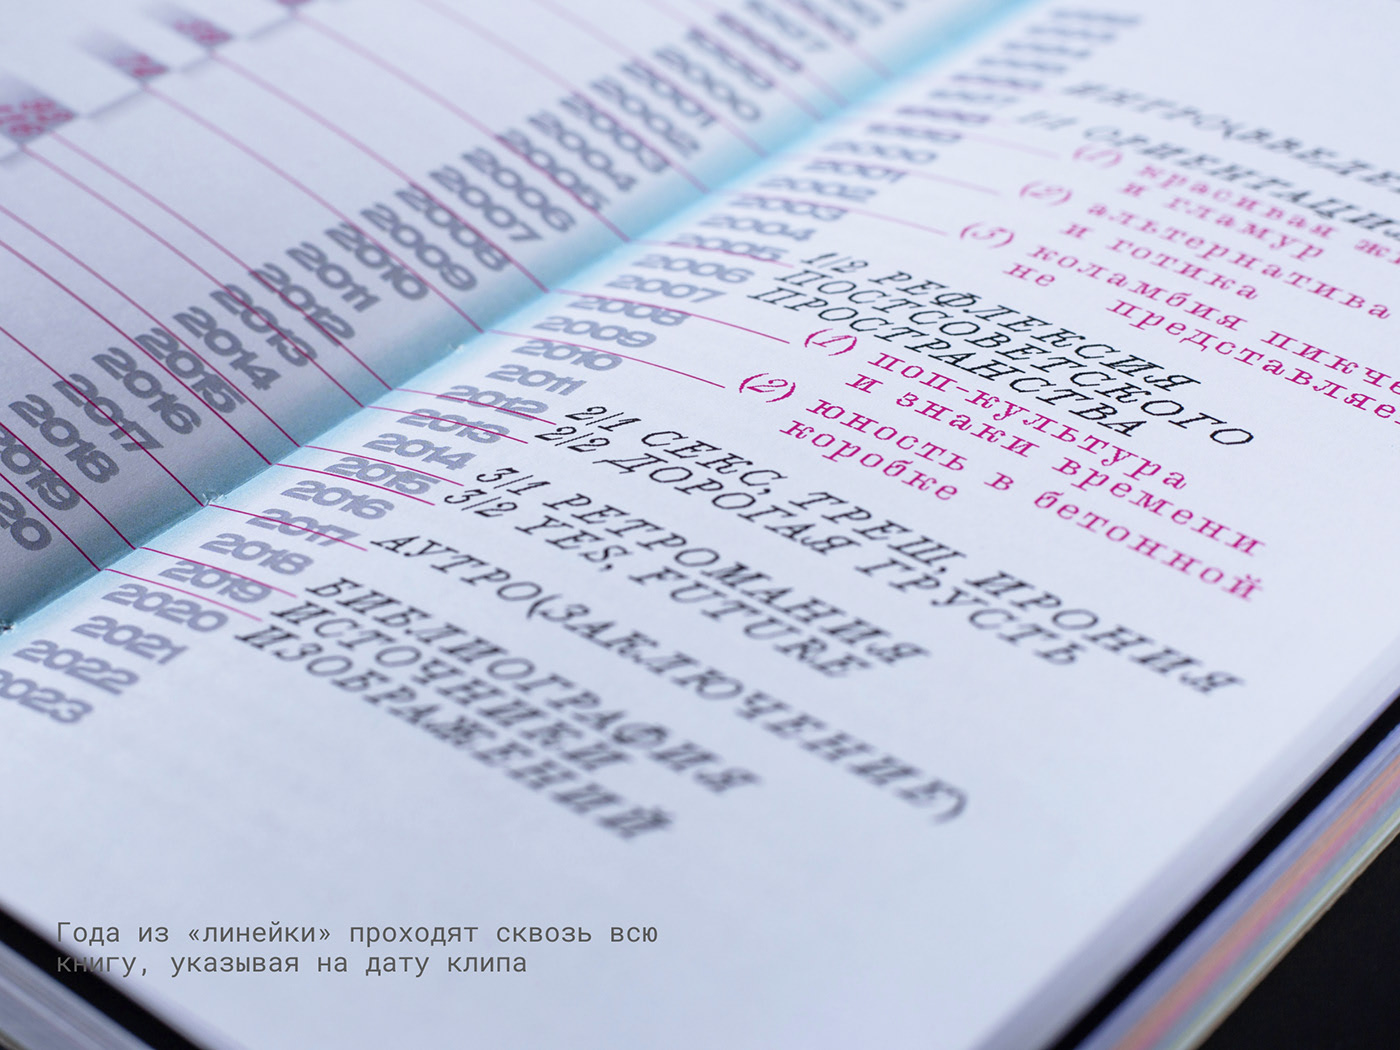 2000
2001
2002
2003
2004
2005
2006
2007
2008
2009
2010
2011
2012
2013
2014
2015
2016
2017
2018
2019
20
2000
2001
2002
2003
2004
2005
2006
2007
2008
2009
2010
2011
2012
2013
2014
2015
2016
2017
2018
2019
2020
2021
2022
2023
1/1 ОРИЕНТАЦИЯ
(1) красивая
и гламур
(2) альтернатива
и готика
(3) коламбия пикче
не представляе
1/2 РЕФЛЕКСИЯ
ПОСТСОВЕТСКОГО
ПРОСТРАНСТВА
(1) поп-культура
и знаки времени
(2) юность в бетонной
коробке
2/1 СЕКС, ТРЕШ, ИРОНИЯ
2/2 ДОРОГАЯ ГРУСТЬ
3/1 РЕТРОМАНИЯ
3/2 YES, FUTURE
АУТРО(ЗАКЛЮЧЕНИЯ)
БИБЛИОГРАФИЯ
ИСТОЧНИКИ
ИЗОБРАЖЕНИЙ
Года из «линейки» проходят сквозь всю
книгу, указывая на дату клипа